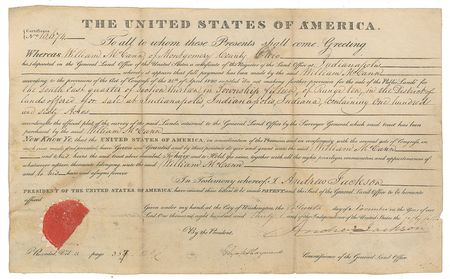 Certificate No. 10,074
THE UNITED STATES OF AMERICA.
To all to whom these Presents shall come, Greeting
Whereas William McCann of Montgomery County Ohio
has deposited in the General Land Office of the United States a certificate of the Register of the Land Office at Indianapolis
whereby it appears that full payment has been made by the said William McCann
according to the provisions of the act of Congress of the 24th of April 1820 entitled An act making further provision for the sale of the Public Lands for
the South East quarter of Section thirteen, in Township fifteen, of Range ten, in the District of
lands offered for sale at Indianapolis, Indiana, containing One hundred
and sixty Acres
according to the official plat of the survey of the said Lands returned to the General Land Office by the Surveyor General which said tract has been
purchased by the said William McCann
Now Know Ye, that the UNITED STATES OF AMERICA, in consideration of the Premises and in conformity with the several acts of Congress in
such case made and provided, have given and granted and by these presents do give and grant unto the said William McCann
and to his heirs the said tract above described To Have and to Hold the same, together with all the rights privileges immunities and appurtenances of
whatsoever nature thereunto belonging unto the said William McCann
and to his heirs and assigns forever
In Testimony whereof I, Andrew Jackson
PRESIDENT OF THE UNITED STATES OF AMERICA, have caused these Letters to be made PATENT and the Seal of the General Land Office to be hereunto
affixed
Given under my hand at the City of Washington, the day of in the Year of our
Lord One thousand eight hundred and thirty and of the Independence of the United States the fifty
By the President.
Andrew Jackson
Elijah Hayward Commissioner of the General Land Office
Recorded Vol. page